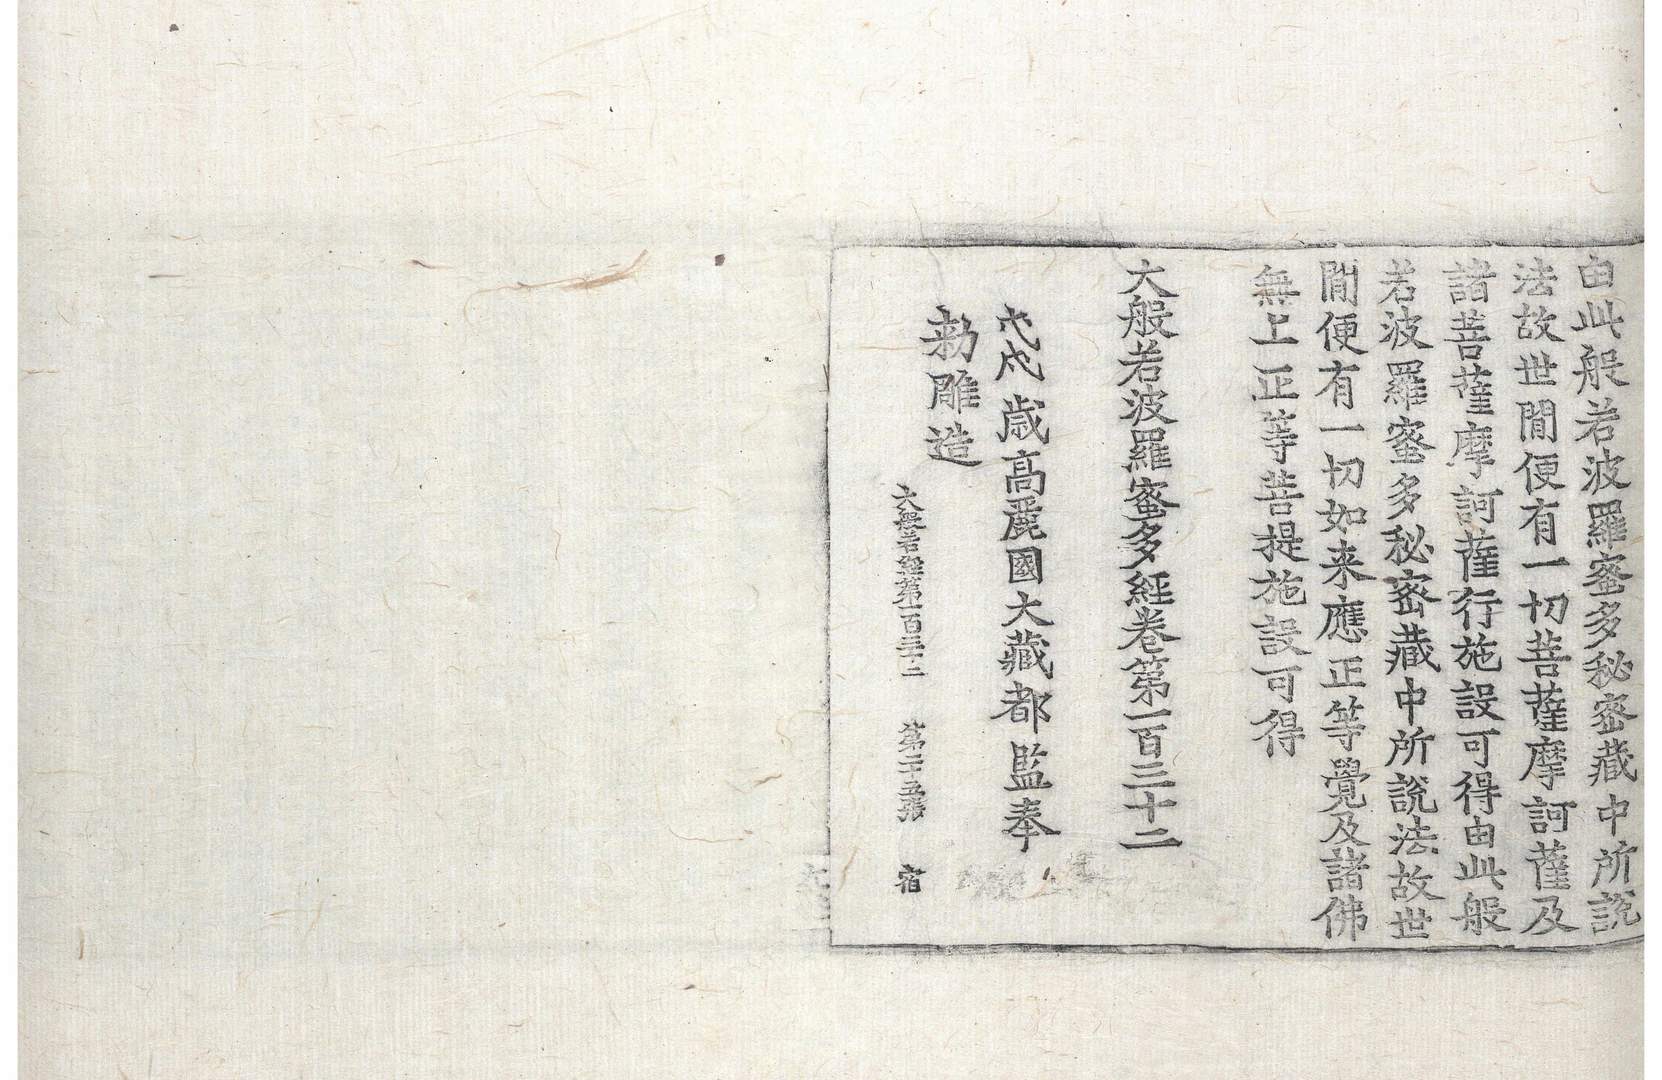 由此般若波羅蜜多秘密藏中所說
法故世閒便有一切菩薩摩訶薩及
諸菩薩摩訶薩行施設可得由此般
若波羅蜜多秘密藏中所說法故世
閒便有一切如来應正等覺及諸佛
無上正等菩提施設可得
大般若波羅蜜多經卷第一百三十二
戊戌歲高麗國大藏都監奉
勑雕造
大般若經第一百三十二 第二十五張 宿